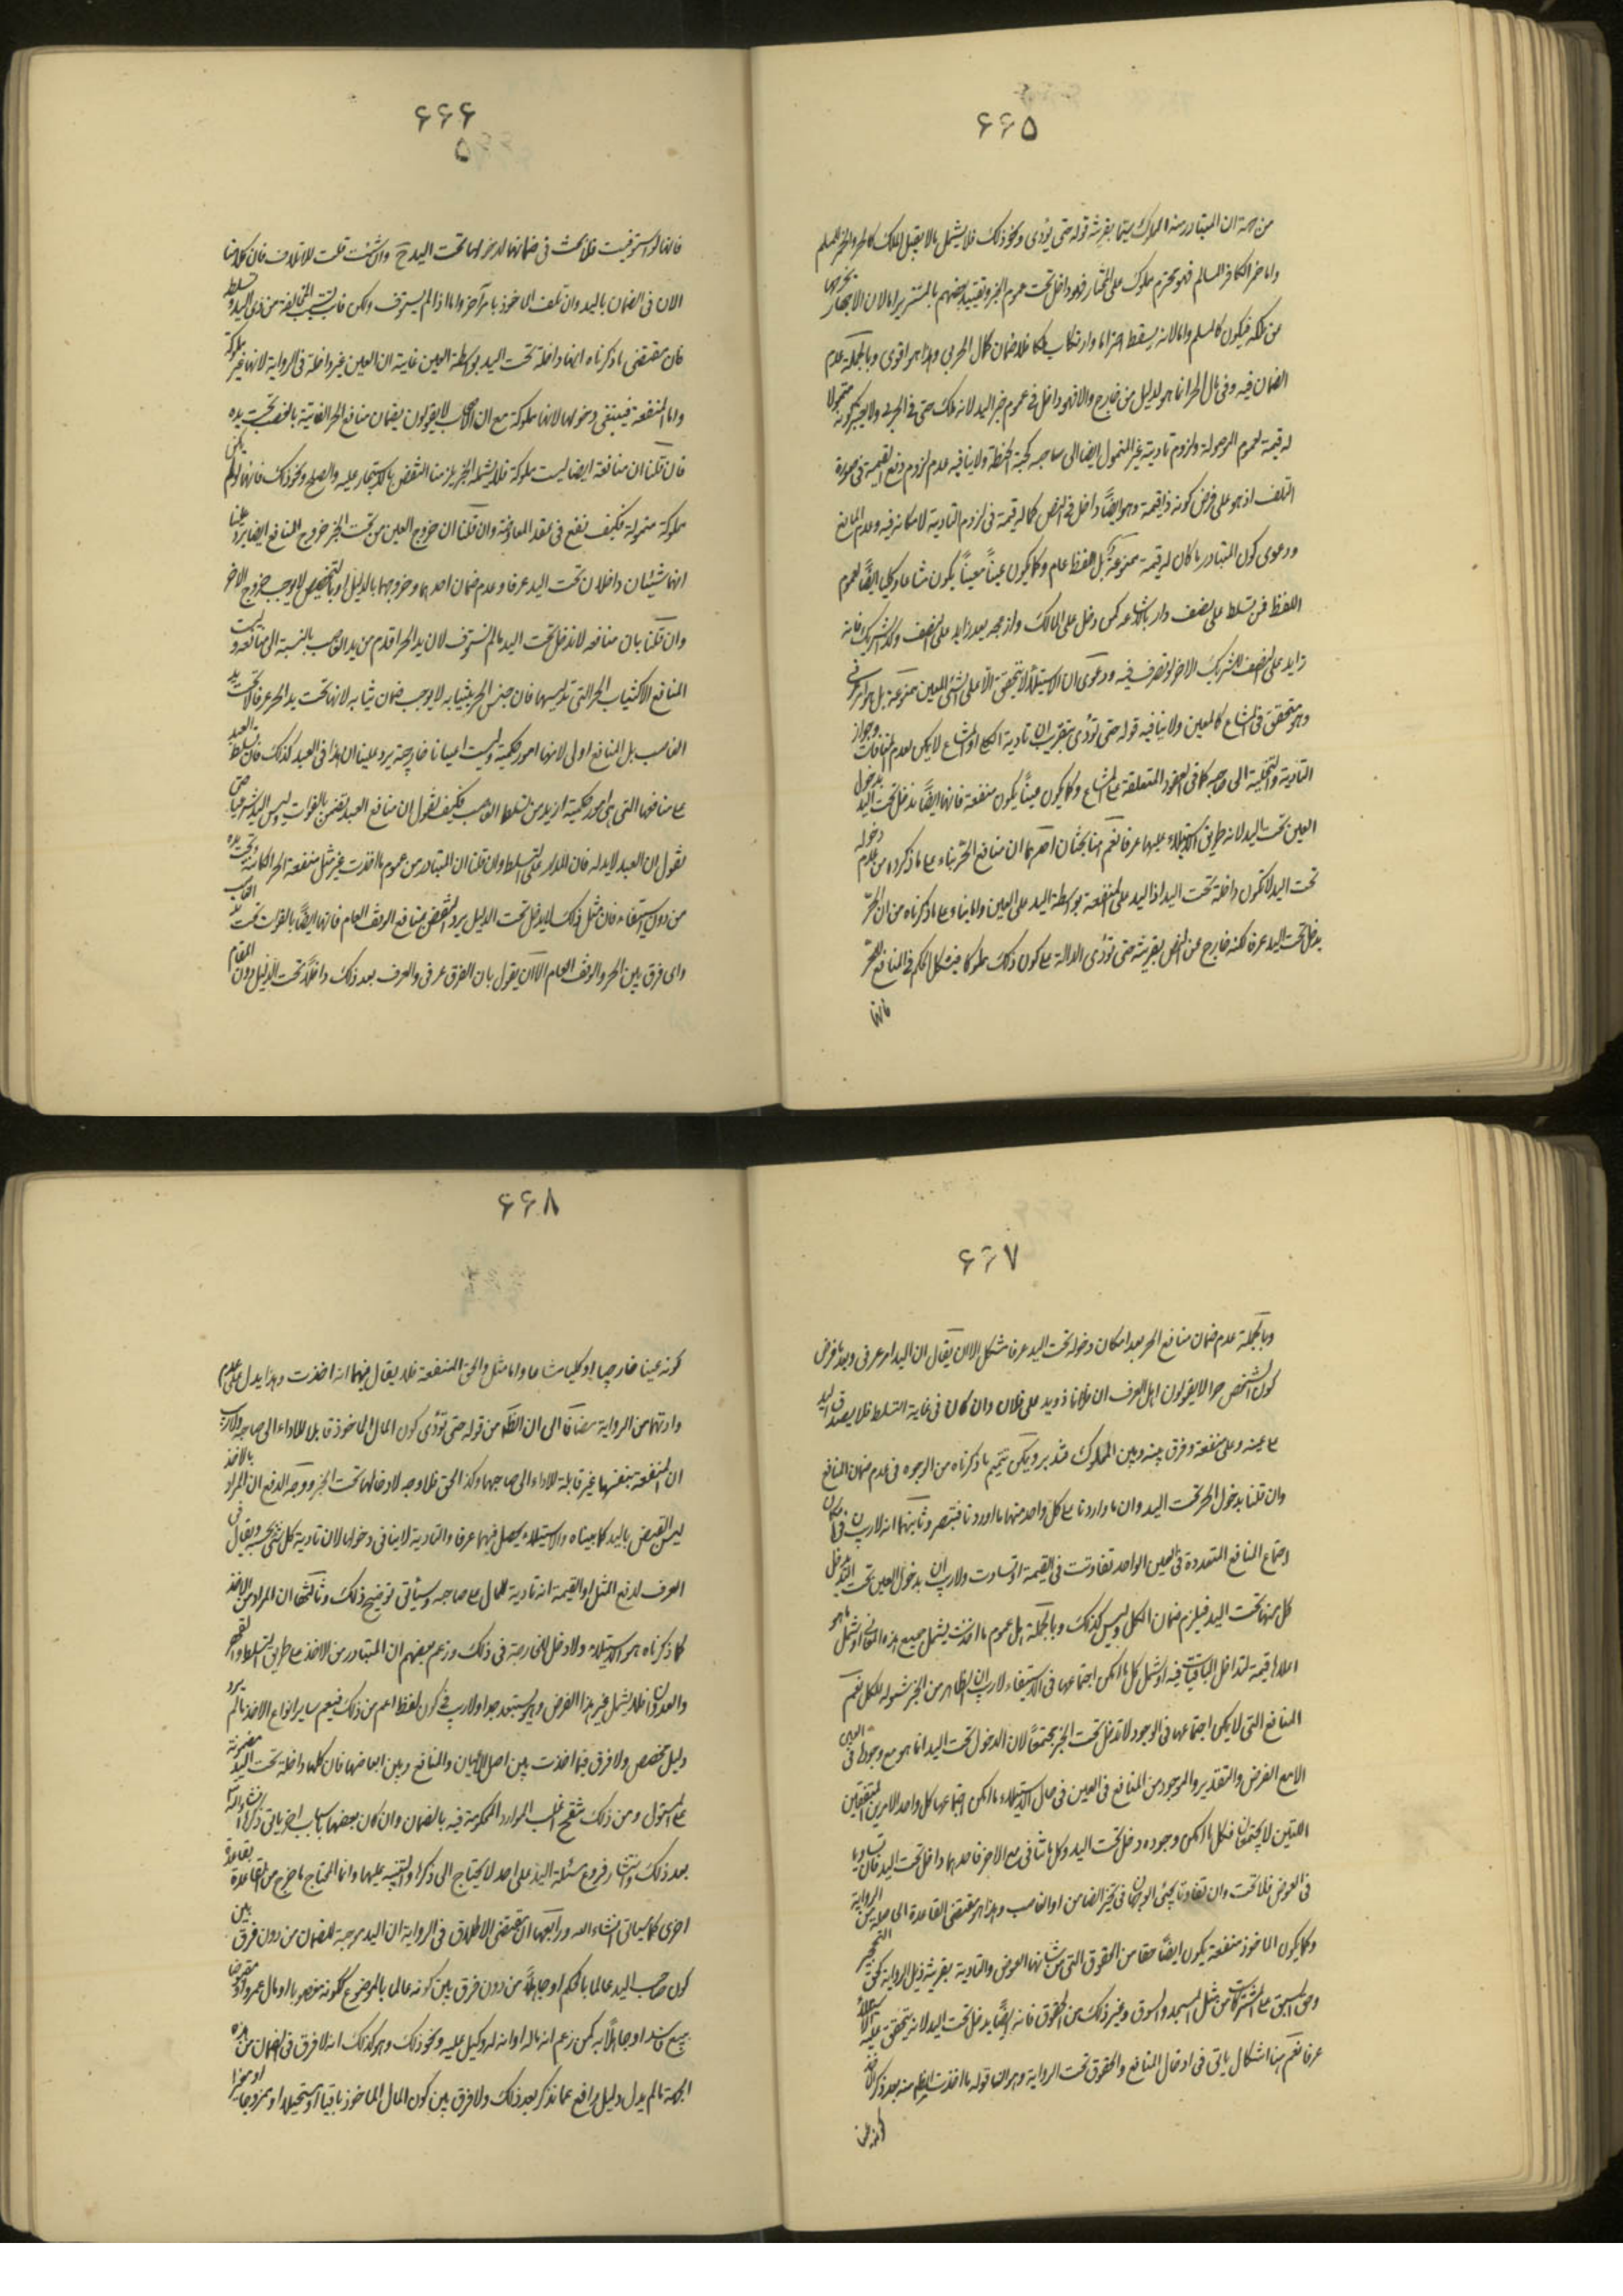 ۶۶۵
من جهة ان المتبادر منه المملوك سيما بقرينة قوله حتى يؤدى ونحو ذلك فلا يشمل ما لا يقبل الملك كالحر والخمر للمسلم
واما خمر الكافر المسالم فهو محترم مملوك على المختار فهو داخل تحت عموم الخبر وتقييد بعضهم بالمستتر اما لان الاجهار يخرجها
عن ملكه فيكون كالمسلم واما لانه يسقط احترامها وارتكاب فلا ضمان كمال الحربى وهذا هو اقوى وبالجملة عدم
الضمان فيه وفى مال الحربى انما هو لدليل من خارج والا فهو داخل فى عموم خبر اليد لانه ملك حتى فى الحربى ولا يعتبر كونه متمولا
له قيمة لعموم الموصولة ولزوم تادية غير المتمول ايضا الى صاحبه كحبة الحنطة ولا ينافيه عدم لزوم دفع القيمة فى صورة
التلف اذ هو على فرض كونه ذا قيمة وهو ايضاً داخل فى النص كما له قيمة فى لزوم التادية لامكانه فيه وعدم المانع
ودعوى كون المتبادر ما كان له قيمة ممنوعة بل اللفظ عام وكما يكون عيناً معيناً يكون مشاعا وكليا ايضاً لعموم
اللفظ فمن تسلط على نصف دار بالاشاعه كمن دخل على المالك وازعجه يعد ذا يد على النصف وكذا الشريك فانه
ذا يد على نصف الشريك الاخر لو تصرف فيه ودعوى ان الاستيلاء لا يتحقق الا على الشئ المعين ممنوعة بل هو امر عرفى
وهو متحقق فى المشاع كالمعين ولا ينافيه قوله حتى تؤدى بتقريب ان تادية الكلى او المشاع لا يمكن لعدم المنافات وجواز
التادية والتخلية الى صاحبه كما فى العقود المتعلقة على المشاع وكما يكون عيناً يكون منفعة فانها ايضاً تدخل تحت اليد بدخول
العين تحت اليد لانه طريق الاستيلاء عليها عرفا نعم هنا بحثان احدهما ان منافع الحرّ بناء على ما ذكروه من عدم دخوله
تحت اليد لا تكون داخلة تحت اليد اذ اليد على المنفعة بواسطة اليد على العين واما بناء على ما ذكرناه من ان الحرّ
يدخل تحت اليد عرفا لكنه خارج عن النص بقرينة حتى تؤدى الدالة على كون ذلك مملوكا فيشكل الحكم فى المنافع للحرّ
فانها
۶۶۶
۵
فانها لو استوفيت فلا بحث فى ضمانها لدخولها تحت اليد ح وان شئت قلت للاتلاف فان كلامنا
الان فى الضمان باليد وان تلف الماخوذ بامر آخر واما اذا لم يستوف ولكن فات بسبب المخالفة من ذى اليد و تسلط
فان مقتضى ما ذكرناه انها داخلة تحت اليد بواسطة العين غاية ان العين غير داخلة فى الرواية لانها غير مملوكة
واما المنفعة فينبغى دخولها لانها مملوكة مع ان الاصحاب لا يقولون بضمان منافع الحر الفائتة بالغصب تحت يده
فان قلنا ان منافعه ايضا ليست مملوكة فلا يشمله الخبر يلزمنا النقض بالاستيجار عليه والصلح ونحو ذلك فانها لو لم تكن
مملوكة متمولة فكيف تقع فى عقد المعاوضة وان قلنا ان خروج العين من تحت الخبر خروج المنافع ايضا يرد علينا
انهما شيئان داخلان تحت اليد عرفا وعدم ضمان احدهما وخروجهما بالدليل او بالتخصيص لا يوجب خروج الاخر
وان قلنا بان منافعه لا تدخل تحت اليد ما لم تستوف لان يد الحر اقدم من يد الغاصب بالنسبة الى منافعه وليست
المنافع الا كثياب الحر التى تلبسها فان حبس الحر بثيابه لا يوجب ضمان ثيابه لانها تحت يد الحر عرفا لا تحت يد
الغاصب بل المنافع اولى لانها امور حكمية وليست اعيانا خارجية يرد علينا ان هذا فى العبد كذلك فان تسلط العبد
على منافعها التى هى امور حكمية ازيد من تسلط الغاصب فكيف نقول ان منافع العبد تضمن بالفوات وليس اليد شرعيا حتى
نقول ان العبد لا يد له فان المدار على التسلط وان قلنا ان المتبادر من عموم ما اخذت غير مثل منفعة الحر الكائنة تحت يده
من دون استيفاء فان مثل ذلك لا يدخل تحت الدليل يرد النقض بمنافع الوقف العام فانها ايضاً بالفوات تحت يد الغاصب
واى فرق بين الحر والوقف العام الا ان يقول بان الفرق عرفى والعرف بعد ذلك داخلاً تحت الدليل دون المقام
۶۶۷
وبالجملة عدم ضمان منافع الحر بعد امكان دخوله تحت اليد عرفا مشكل الا ان يقال ان اليد امر عرفى وبعد فرض
كون الشخص حرا لا يقولون اهل العرف ان فلانا ذو يد على فلان وان كان فى غاية التسلط فلا يصدق اليد
على عينه وعلى منفعته وفرق بينه وبين المملوك فتدبر ويمكن تتميم ما ذكرناه من الوجوه فى عدم ضمان المنافع
وان قلنا بدخول الحر تحت اليد وان ما اوردنا على كل واحد منها ما اوردنا فتبصر وثانيهما انه لا ريب فى امكان
اجتماع المنافع المتعددة فى العين الواحد تفاوتت فى القيمة او تساوت ولا ريب ان بدخول العين تحت اليد تدخل
كل منها تحت اليد فيلزم ضمان الكل وليس كذلك وبالجملة هل عموم ما اخذت يشمل جميع هذه المنافع او يشمل ما هو
اعلاها قيمة لتداخل الباقيات فيه او يشمل كل ما امكن اجتماعها فى الاستيفاء لا ريب ان الظاهر من الخبر شموله للكل نعم
المنافع التى لا يمكن اجتماعها فى الوجود لا تدخل تحت الخبر مجتمعاً لان الدخول تحت اليد انما هو مع وجودها فى العين
الا مع الفرض والتقدير والموجود من المنافع فى العين فى حال الاستيلاء ما امكن اجتماعها كل واحد الامرين المتفقين
الذين لا يجتمعان فكل ما امكن وجوده دخل تحت اليد وكل ما تنافى مع الاخر فاحدهما داخل تحت اليد فان تساويا
فى العوض فلا بحث وان تفاوتا يجئ الوجهان فى تخيير الضامن او الغاصب وهذا هو مقتضى القاعدة الى من الرواية
وكما يكون الماخوذ منفعة يكون ايضاً حقا من الحقوق التى من شانها العوض والتادية بقرينة ذيل الرواية كحق التحجير
وحق السبق على المشتركات من مثل المسجد والسوق وغير ذلك من الحقوق فانه ايضاً يدخل تحت اليد لانه يتحقق عليه الاستيلاء
عرفا نعم هنا اشكال ياتى فى ادخال المنافع والحقوق تحت الرواية وهو ان قوله ما اخذت الظاهر منه بعد ذكر الاخذ
كونه عينا
۶۶۸
كونه عينا خارجيا او كليا مشاعا واما مثل الحق المنفعة فلا يقال فيهما انه اخذت وهذا يدل على عدم
ارادتهما من الرواية مضافا الى ان الظاهر من قوله حتى تؤدى كون المال الماخوذ قابلا للاداء الى صاحبه ولا ريب
ان المنفعة بنفسها غير قابلة للاداء الى صاحبها وكذا الحق فلا وجه لادخالها تحت الخبر ووجه الدفع ان المراد بالاخذ
ليس القبض باليد كما بيناه والاستيلاء يحصل فيهما عرفا والتادية لا ينافى دخولها لان تادية كل شئ بحسبه ويقال فى
العرف لدفع المثل او القيمة انه تادية للمال على صاحبه وسيأتى توضيح ذلك وثالثها ان المراد من الاخذ
كما ذكرناه هو الاستيلاء ولا دخل للخارجة فى ذلك وزعم بعضهم ان المتبادر من الاخذ على طريق التسلط والقهر
والعدوان فلا يشمل غير هذا الفرض وهو مستبعد جدا ولا ريب فى كون لفظ اعم من ذلك فيعم سائر انواع الاخذ ما لم يرد
دليل مخصص ولا فرق فيما اخذت بين اصل الاعيان والمنافع وبين ابعاضها فان كلها داخلة تحت اليد مضمونة
على المستولى ومن ذلك ينقح اغلب الموارد المحكومة فيه بالضمان وان كان بعضها باسباب اخر ياتى ذكرها انشاء الله
بعد ذلك وانتشار فروع مسئلة اليد على احد لا يحتاج الى ذكرها والتنبيه عليها وانما المحتاج ما خرج من القاعدة بقاعدة
اخرى كما سياتى انشاء الله ورابعها ان مقتضى الاطلاق فى الرواية ان اليد موجبة للضمان من دون فرق بين
كون صاحب اليد عالما بالحكم او جاهلاً من دون فرق بين كونه عالما بالموضوع ككونه مغصوبا او مال عمرو او مقبوضا
ببيع فاسد او جاهلاً به كمن زعم انه ماله او انه له وكيل عليه ونحو ذلك وهو كذلك انه لا فرق فى الضمان من هذه
الجهة ما لم يدل دليل رافع عما نذكر بعد ذلك ولا فرق بين كون المال الماخوذ باقيا او مستحيلا او ممزوجا او مغيرا